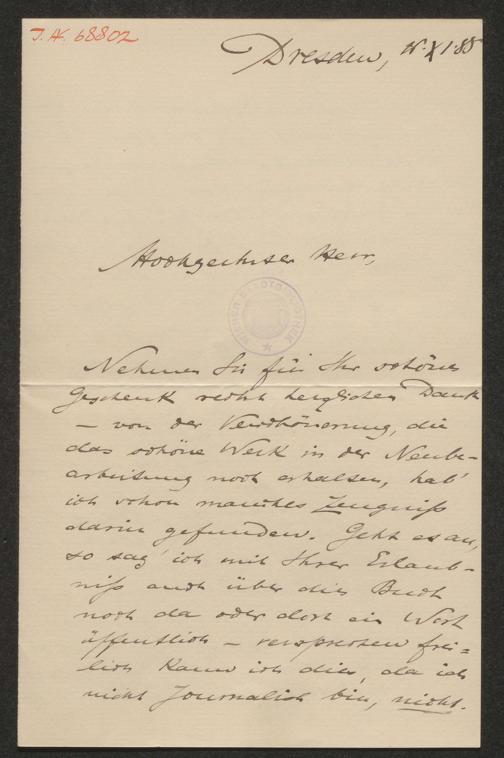 J.N. 68802
Dresden, XI. 85
Hochgeehrter Herr,
WIENER STADTBIBLIOTHEK
Nehmen Sie für Ihr schönes
Geschenk recht herzlichen Dank
– von der Verschönerung, die
das schöne Werk in der Neube-
arbeitung noch erhalten, hab'
ich schon manches Zeugniß
darin gefunden. Geht es an,
so sag' ich mit Ihrer Erlaub-
niß auch über dies Buch
noch da oder dort ein Wort
öffentlich – versprechen frei-
lich kann ich dies, da ich
nicht Journalist bin, nicht.